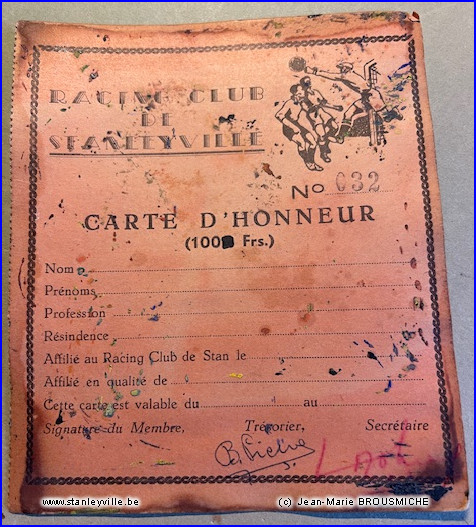 RACING CLUB
DE
STANLEYVILLE
No 032
CARTE D'HONNEUR
(100 Frs.)
Nom
Prénoms
Profession
Résindence
Affilié au Racing Club de Stan le
Affilié en qualité de
Cette carte est valable du au
Signature du Membre, Trésorier, Secrétaire
www.stanleyville.be (c) Jean-Marie BROUSMICHE